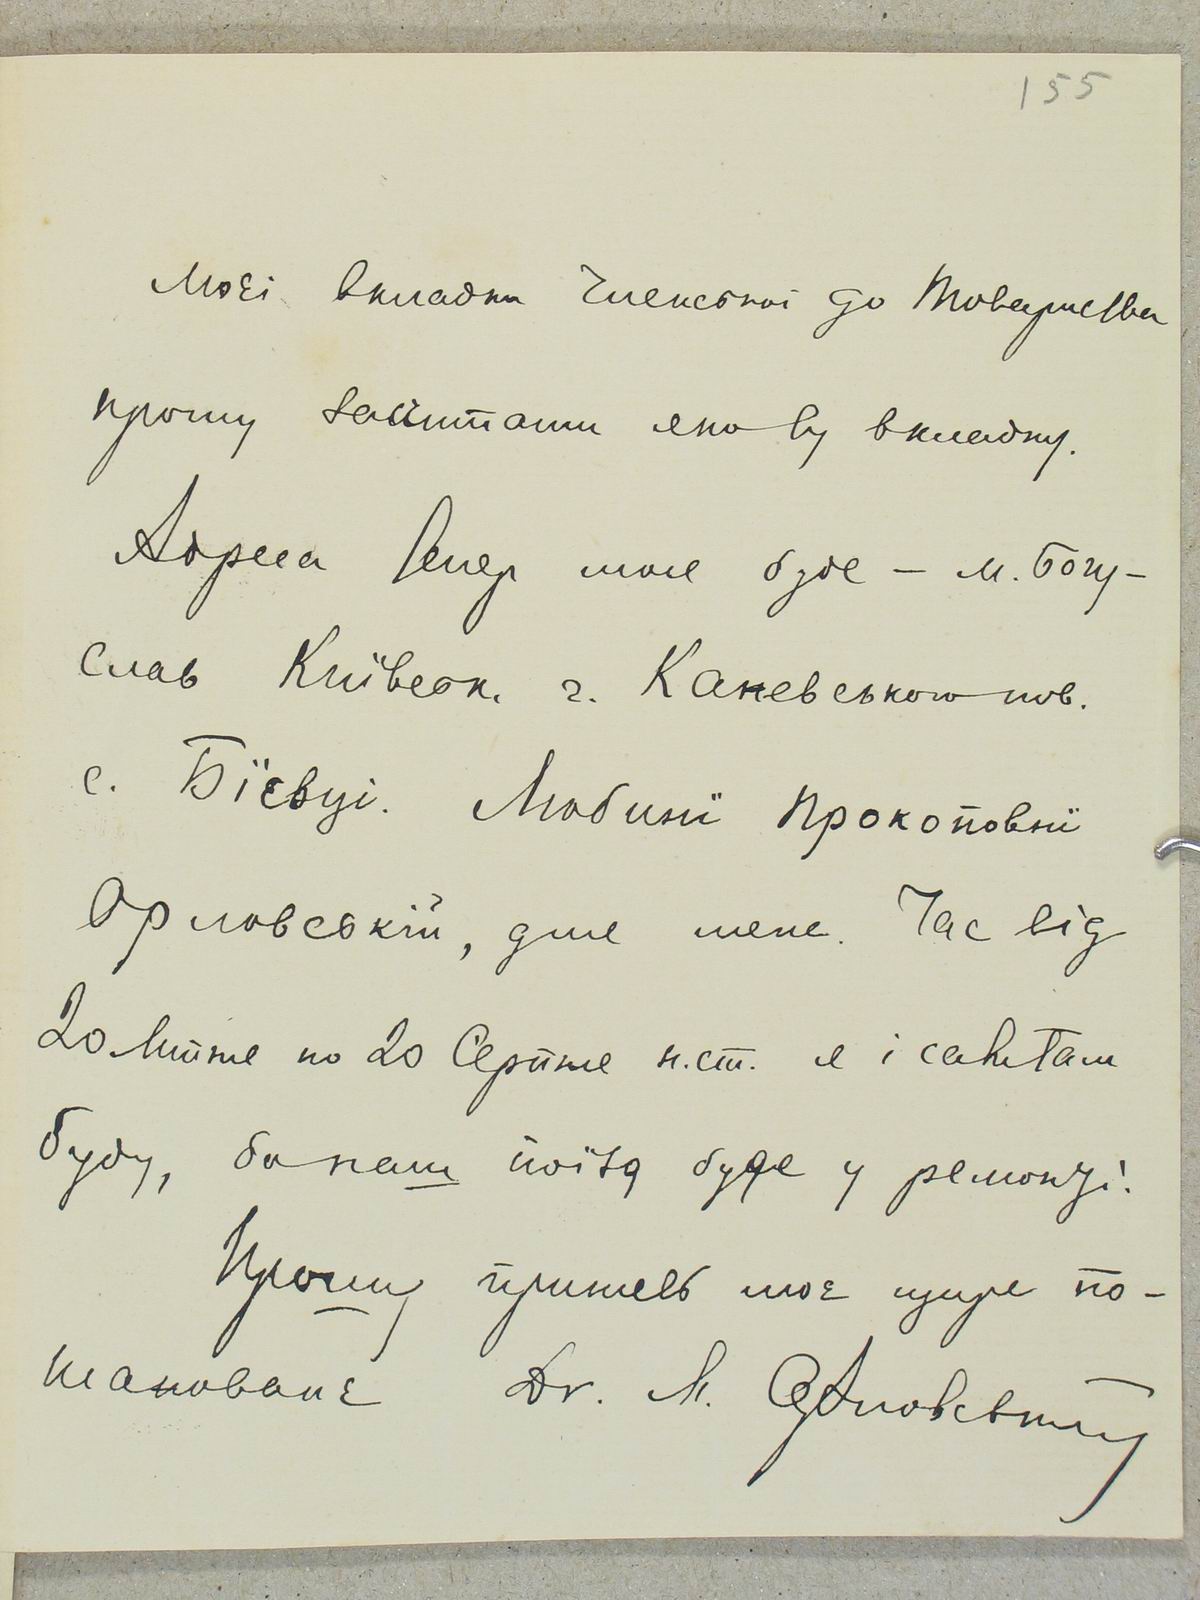 155
Моєі вкладки членської до Товариства
прошу запитати якову вкладку.
Адреса Тепер моя буде — м. Богу-
слав Київськ. г. Каневського пов.
с. Біївці. Любині Прокоповні
Орловській, для мене. Час від
20 Липня по 20 Серпня н.ст. я і сам там
буду, бо наш поїзд буде у ремонті.
Прошу прийняти моє щире по-
шановане Dr. М.